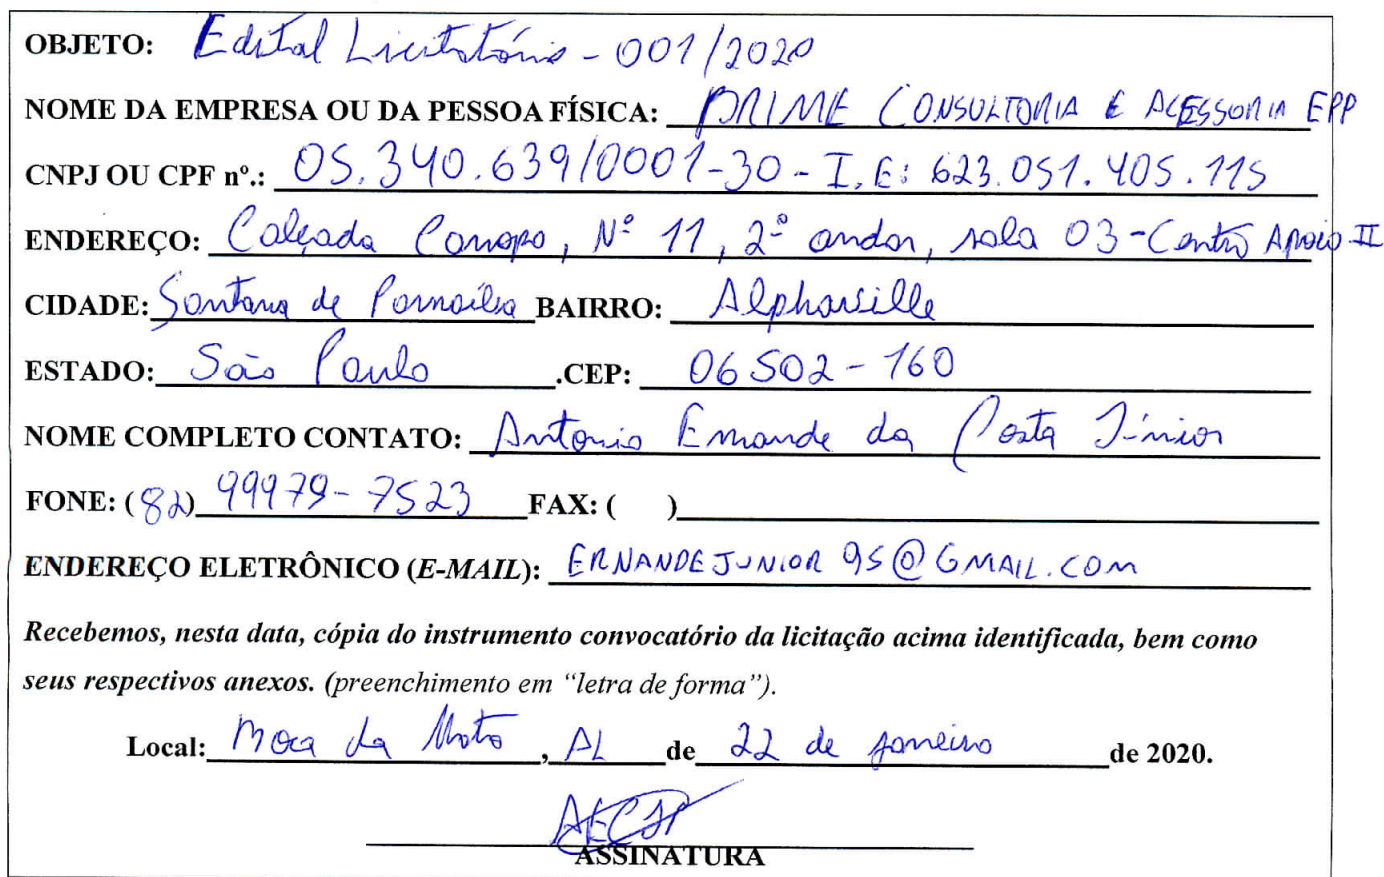 OBJETO: Edital Licitatório - 001/2020
NOME DA EMPRESA OU DA PESSOA FÍSICA: PRIME CONSULTORIA E ACESSORIA EPP
CNPJ OU CPF nº.: 05.340.639/0001-30 - I.E: 623.051.405.115
ENDEREÇO: Calçada Canopo, Nº 11, 2º andar, sala 03 - Centro Apoio II
CIDADE: Santana de Parnaíba BAIRRO: Alphaville
ESTADO: São Paulo .CEP: 06502-160
NOME COMPLETO CONTATO: Antonio Ernande da Costa Júnior
FONE: (82) 99979-7523 FAX: ( )
ENDEREÇO ELETRÔNICO (E-MAIL): ERNANDEJUNIOR95@GMAIL.COM
Recebemos, nesta data, cópia do instrumento convocatório da licitação acima identificada, bem como
seus respectivos anexos. (preenchimento em “letra de forma”).
Local: da Mata, AL de 22 de janeiro de 2020.
AECJr
ASSINATURA